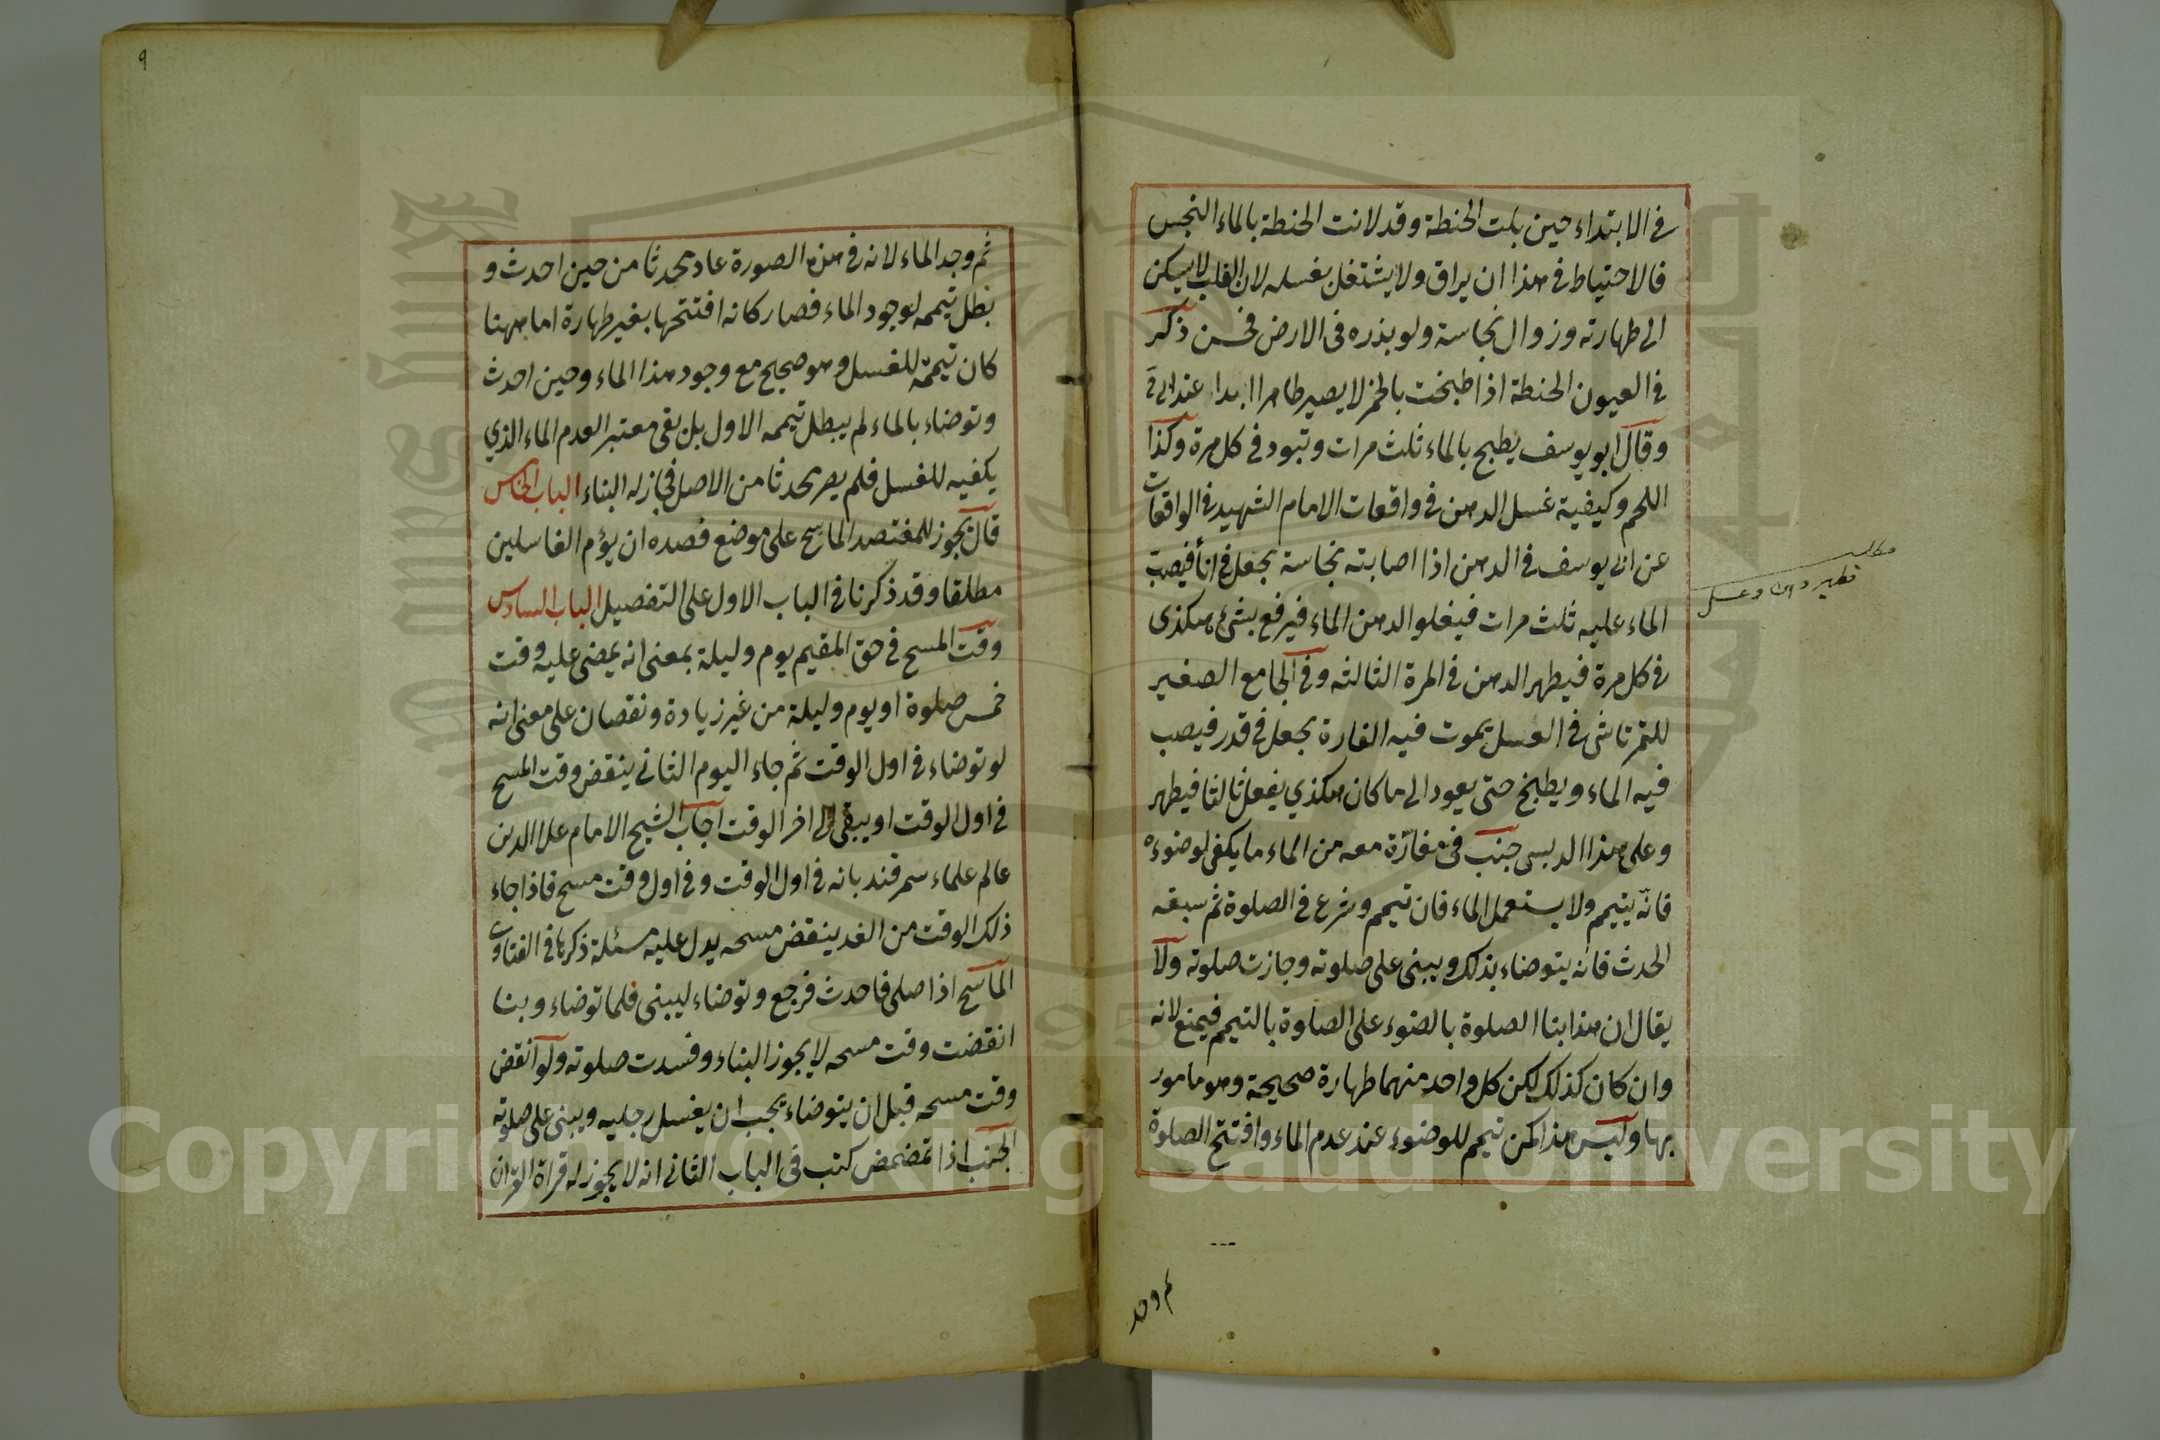 في الابتداء حين بلت الحنطة وقد لانت الحنطة بالماء النجس
فالاحتياط في هذا ان يراق ولا يشتغل بغسله لان القلب لا يسكن
الى طهارته وزوال نجاسة ولو بذره في الارض فحسن ذكر
في العيون الحنطة اذا طبخت بالخمر لا يصير طاهرا ابدا عند
وقال ابو يوسف يطبخ بالماء ثلث مرات وتبرد في كل مرة وكذا
اللحم وكيفية غسل الدهن في واقعات الامام الشهيد في الواقعات
عن ابي يوسف في الدهن اذا اصابته نجاسة يجعل في انأ فيصب
الماء عليه ثلث مرات فيغلوا الدهن الماء فيرفع بشئ هكذى
في كل مرة فيطهر الدهن في المرة الثالثه وفي الجامع الصغير
للتمرتاشي في العسل يموت فيه الفارة يجعل في قدر فيصب
فيه الماء ويطبخ حتى يعود الى ما كان هكذي يفعل ثالثا فيطهر
وعلى هذا الدبس جنب في مفازة معه من الماء ما يكفي لوضوءه
فانه يتيمم ولا يستعمل الماء فان تيمم وشرع في الصلوة ثم سبقه
الحدث فانه يتوضاء بذلك ويبنى على صلوته وجازت صلوته ولا
يقال ان هذا بنا الصلوة بالضوء على الصلوة بالتيمم فيمنع لانه
وان كان كذلك لكن كل واحد منهما طهارة صحيحة وهو مامور
بها وليس هذا كمن تيمم للوضوء عند عدم الماء وافتتح الصلوة
مطلب
تطهير دهن وعسل
ثم وجد
٩
ثم وجد الماء لانه في هذه الصورة عاد محدثا من حين احدث و
بطل تيممه لوجود الماء فصار كانه افتتحها بغير طهارة اما ههنا
كان تيممه للغسل وهو صحيح مع وجود هذا الماء وحين احدث
وتوضاء بالماء لم يبطل تيممه الاول بل بقى معتبر العدم الماء الذي
يكفيه للغسل فلم يصر محدثا من الاصل فجاز له البناء الباب الخامس
قال يجوز للمفتصد الماسح على موضع فصده ان يؤم الغاسلين
مطلقا وقد ذكرنا في الباب الاول على التفصيل الباب السادس
وقت المسح في حق المقيم يوم وليلة بمعنى انه يمضى عليه وقت
خمس صلوة او يوم وليلة من غير زيادة ونقصان على معنى انه
لو توضاء في اول الوقت ثم جاء اليوم الثاني ينقض وقت المسح
في اول الوقت او يبقى الى اخر الوقت اجاب الشيخ الامام علا الدين
عالم علماء سمرقند بانه في اول الوقت وفي اول وقت مسح فاذا جاء
ذلك الوقت من الغد ينقض مسحه يدل عليه مسئلة ذكرها في الفتاوى
الماسح اذا صلى فاحدث فرجع وتوضاء ليبنى فلما توضاء وبنا
انقضت وقت مسحه لا يجوز البناء وفسدت صلوته ولو انقض
وقت مسحه قبل ان يتوضاء يجب ان يغسل رجليه ويبنى على صلوته
الجنب اذا تمضمض كتب في الباب الثاني انه لا يجوز له قراة القران
Copyright © King Saud University